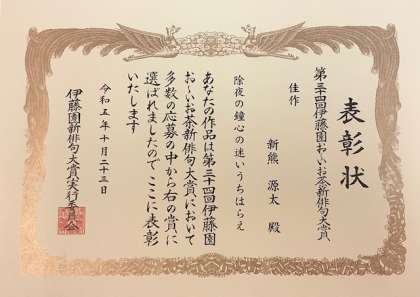 表彰状
第三十四回伊藤園お～いお茶新俳句大賞
佳作
新熊 源太 殿
除夜の鐘心の迷いうちはらえ
あなたの作品は第三十四回伊藤園
お～いお茶新俳句大賞において
多数の応募の中から右の賞に
選ばれましたのでここに表彰
いたします
令和五年十月二十三日
伊藤園新俳句大賞実行委員会